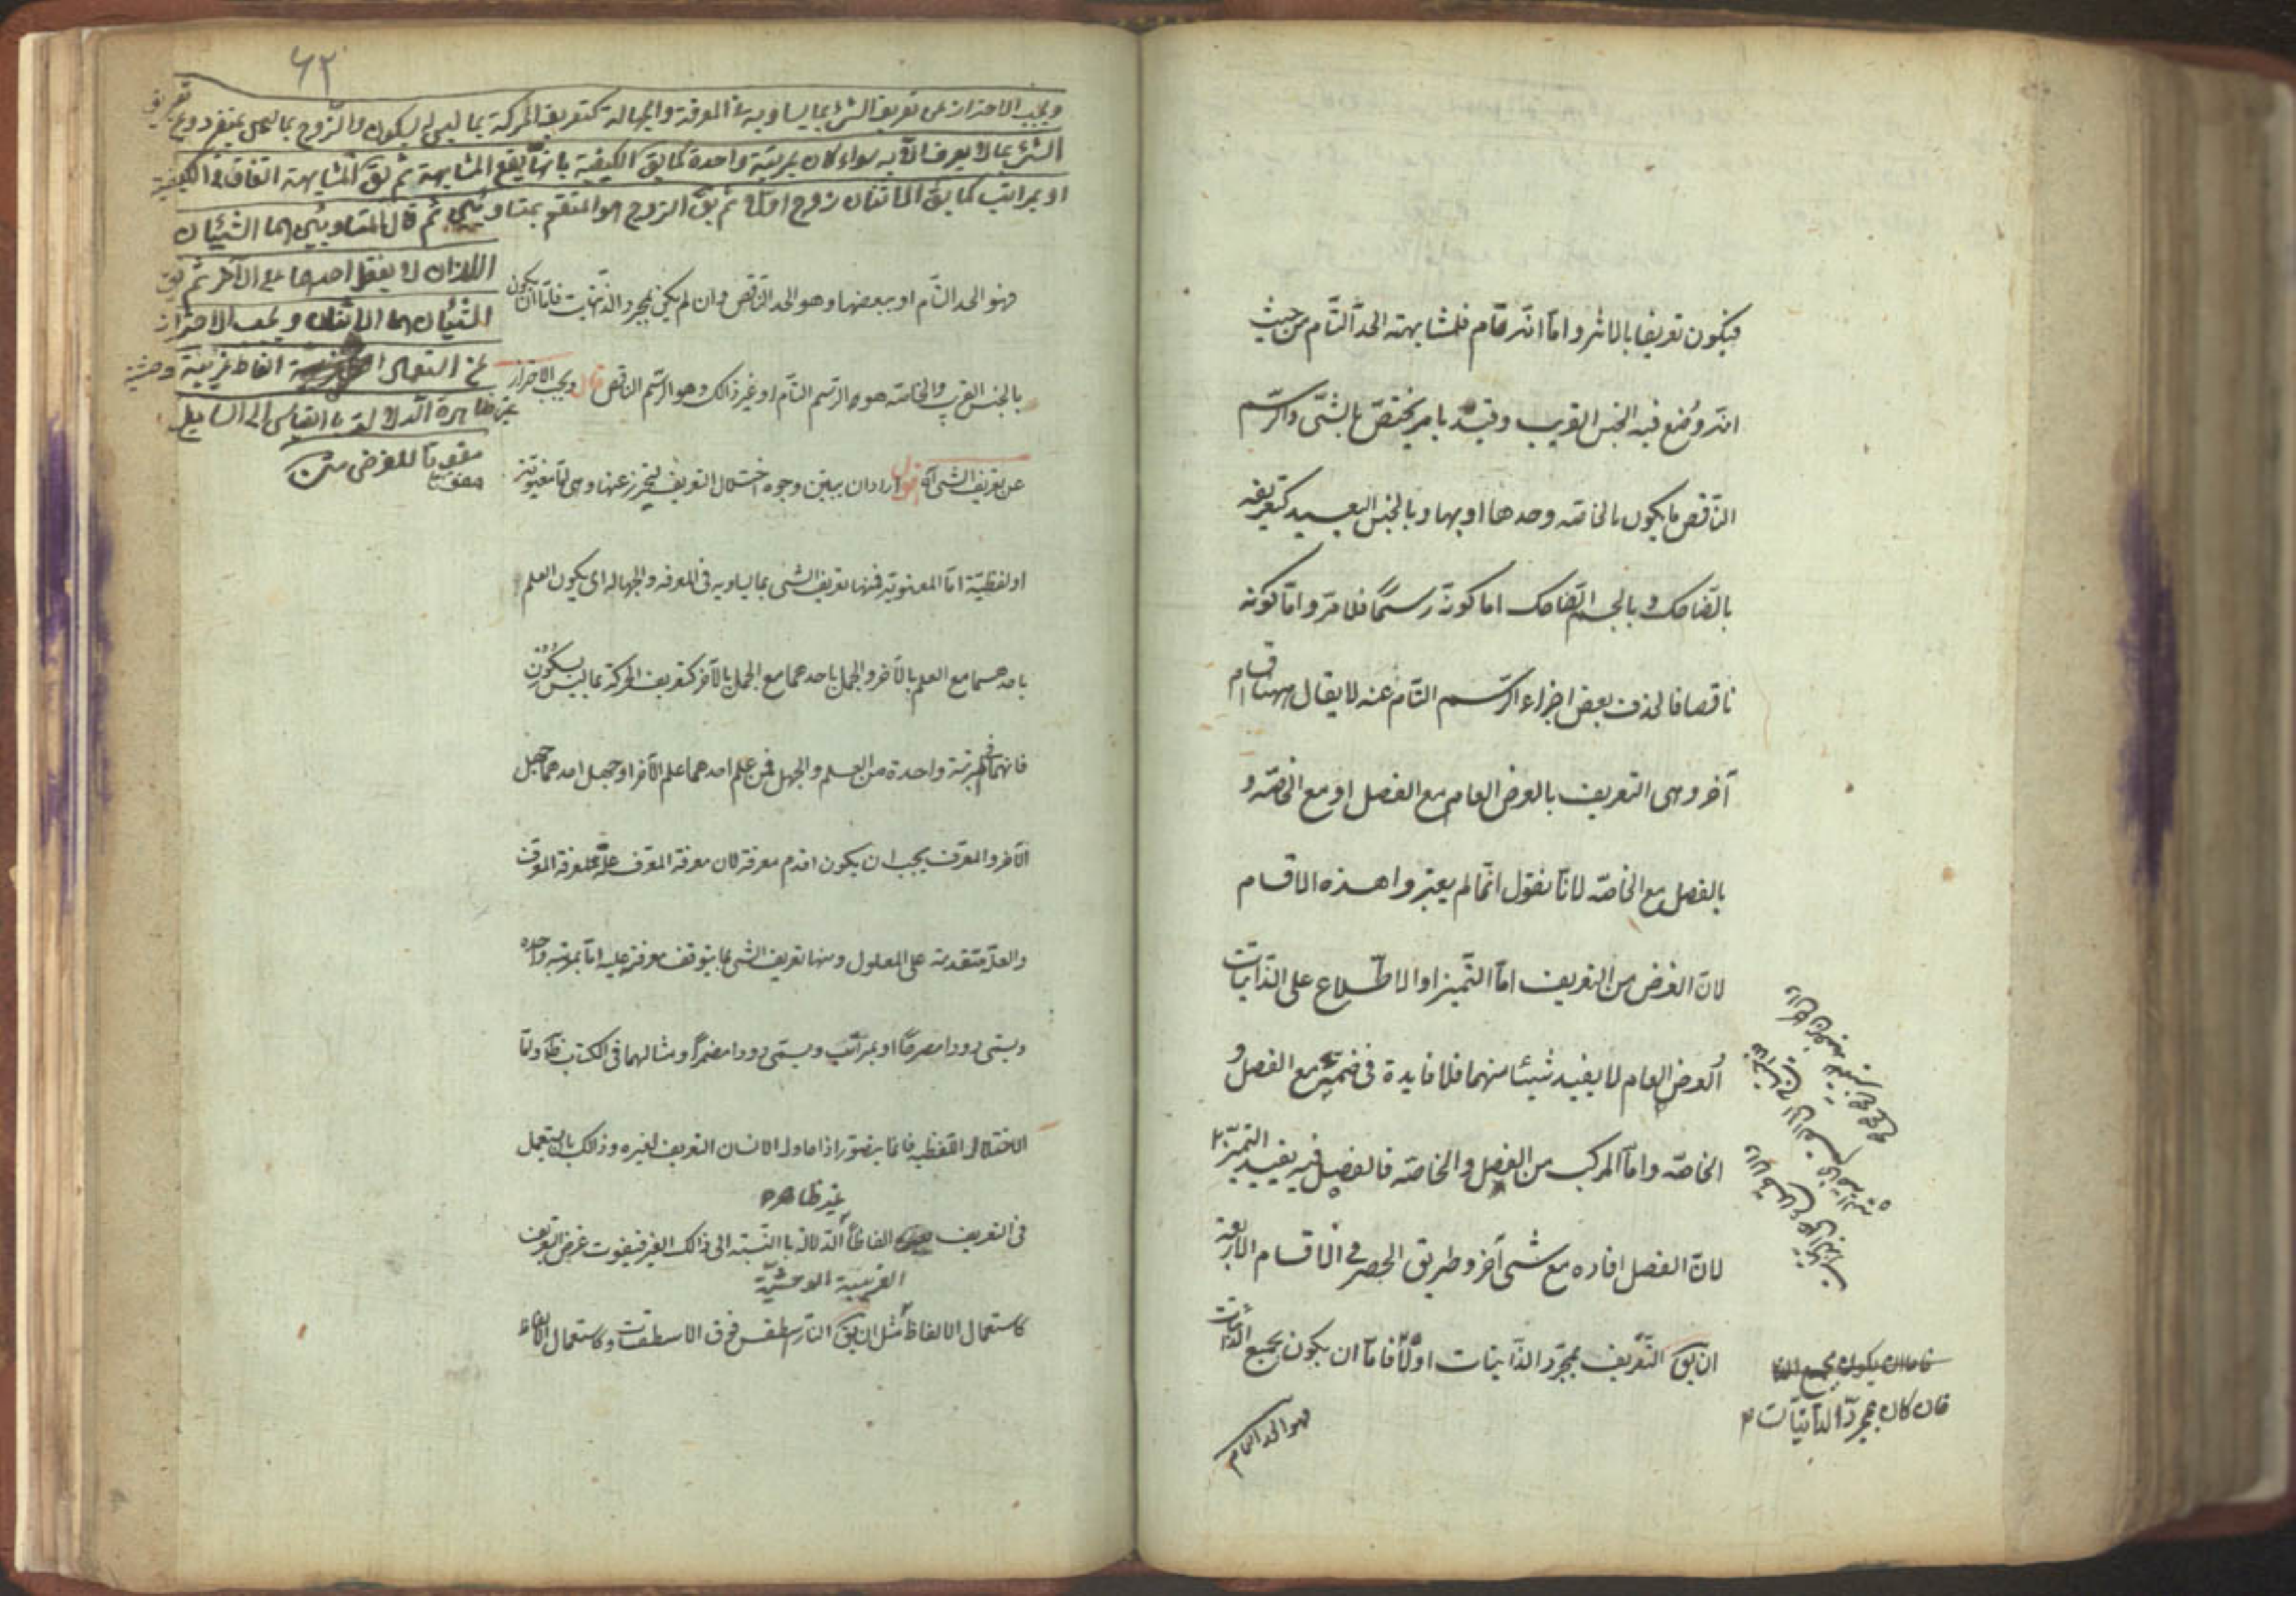 فيكون تعريفا بالاثر واما انه تام فلمشابهته الحدّ التام من حيث
انه وُضع فيه الجنس القريب وقيّد بامر يختصّ بالشئ والرّسم
الناقص ما يكون بالخاصّه وحدها او بها وبالجنس البعيد كتعريفه
بالضاحك و بالجسم الضاحك اما كونه رسمًا فلما مرّ واما كونه
ناقصا فلحذف بعض اجزاء الرّسم التام عنه لا يقال ههنا اقسام
آخر وهى التعريف بالعرض العام مع الفصل او مع الخاصّه و
بالفصل مع الخاصّه لانا نقول انّما لم يعتبروا هذه الاقسام
لانّ الغرض من التعريف امّا التّميز او الاطّلاع على الذّاتيات
و العرض العام لا يفيد شيئا منهما فلا فايدة فى ضمّه مع الفصل و
الخاصّه وامّا المركب من الفصل والخاصّه فالفصل فيه يفيد التميّز
لانّ الفصل افاده مع شئ آخر وطريق الحصر فى الاقسام الاربعة
ان يق التّعريف بمجرّد الذّاتيات اولًا فامّا ان يكون بجميع الذاتيات
فاما ان يكون بجميع الذا
فان كان بمجرّد الذاتيّات
فهو الحد التام
٦٢
ويجب الاحتراز عن تعريف الشئ بما يساويه فى المعرفة والجهالة كتعريف الحركة بما ليس بسكون والزّوج بما ليس بفرد وعن تعريف
الشئ بما لا يعرف الّا به سواء كان بمرتبة واحدة كما يق الكيفية ما بها يقع المشابهة ثم يق المشابهة اتفاق فى الكيفية
او بمراتب كما يق الاثنان زوج اوّل ثم يق الزوج هو المنقسم بمتساويين ثم قال المتساويين هما الشيئان
اللذان لا يفضل احدهما على الآخر ثم يق
الشيئان هما الاثنان ويجب الاحتراز
عن استعمال الفاظ غريبة وحشية
غير ظاهرة الدلالة بالقياس الى السامع
مفوتا للغرض متن
فهو الحد التام او ببعضها وهو الحد الناقص وان لم يكن بمجرد الذاتيات فامّا ان يكون
بالجنس القريب والخاصّه هو الرّسم التام او غير ذالك وهو الرّسم الناقص قال ويجب الاحتراز
عن تعريف الشئ آه اقول اراد ان يبيّن وجوه اختلال التعريف ليحترز عنها وهى امّا معنويّة
او لفظيّة امّا المعنويّة فمنها تعريف الشئ بما يساويه فى المعرفه والجهاله اى يكون العلم
باحدهما مع العلم بالآخر والجهل باحدهما مع الجهل بالآخر كتعريف الحركة بما ليس بسكونٍ
فانهما فى مرتبة واحدة من العلم والجهل فمن علم احدهما علم الآخر او جهل احدهما جهل
الآخر والمعرّف يجب ان يكون اقدم معرفة لان معرفة المعرّف علّة لمعرفة المعرّف
والعلّة متقدمة على المعلول ومنها تعريف الشئ بما يتوقف معرفته عليه امّا بمرتبة واحده
ويسمّى دورا مصرحًا او بمراتب ويسمّى دورا مضمرًا ومثالهما فى الكتاب ظ وامّا
الاختلال اللّفظيه فانّما يتصوّر اذا حاول الانسان التعريف لغيره وذالك بان يستعمل
غير ظاهره
فى التعريف الفاظا الدلالة باالنسبة الى ذالك الغير فيفوت غرض التعريف
الغريبة الوحشيّة
كاستعمال الالفاظ مثل ان يق النار اسطقس فوق الاسطقسات وكاستعمال الالفاظ